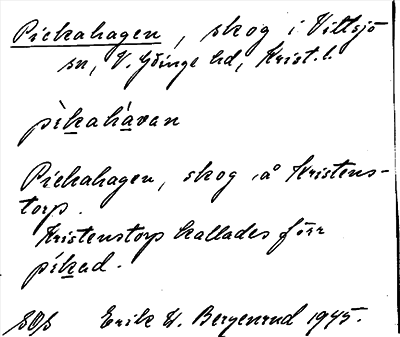 Pickahagen, skog i Vittsjö
sn, V. Göinge hd, Krist. l.
pìkahàvan
Pickahagen, skog å Kristens-
torp.
Kristenstorp kallades förr
píkad.
Erik W. Bergenrud 1945.